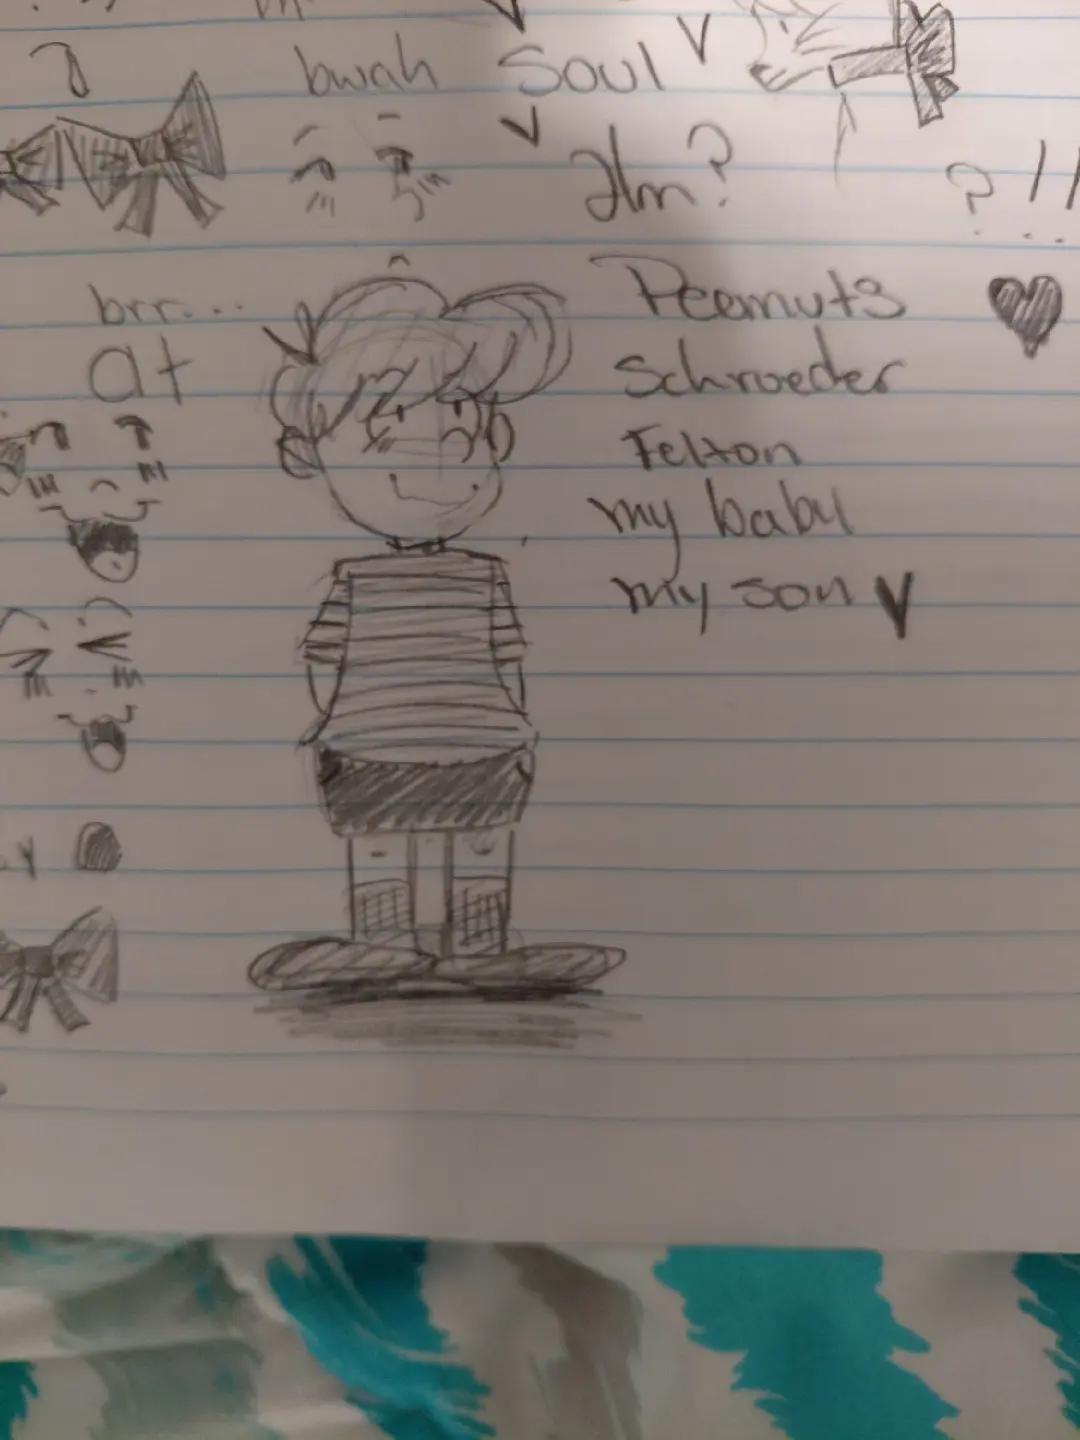 bwah Soul
Hm? ?!!
brr...
at
Peemuts
Schroeder
Felton
my baby
my son